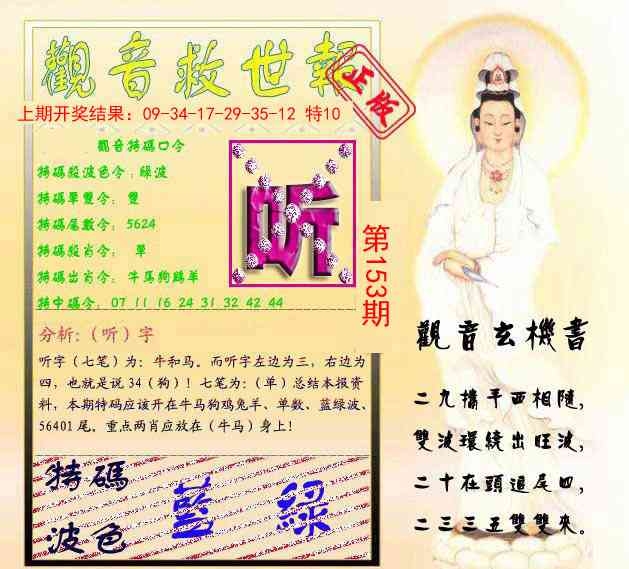 觀音救世報
正版
上期开奖结果：09-34-17-29-35-12 特10
觀音特碼口令
特碼殺波色令：綠波
特碼單雙令：雙
特碼尾數令：5624
特碼殺肖令：單
特碼出肖令：牛馬狗鷄羊
特中碼令：07 11 16 24 31 32 42 44
听
第153期
分析：（听）字
听字（七笔）为：牛和马。而听字左边为三，右边为
四，也就是说 34（狗）！七笔为：（单）总结本报资
料，本期特码应该开在牛马狗鸡兔羊、单数、蓝绿波、
56401 尾。重点两肖应放在（牛马）身上！
特碼
波色
藍 綠
觀音玄機書
二九攜平西相隨，
雙波環繞出旺波，
二十在頭追尾四，
二三三五雙雙來。